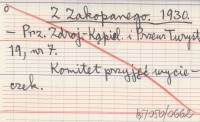 Z Zakopanego. 1930.
— Prz. Zdroj-Kąpiel. i Przem. Turyst.
19, nr 7.
Komitet przyjęć wycie-
czek.